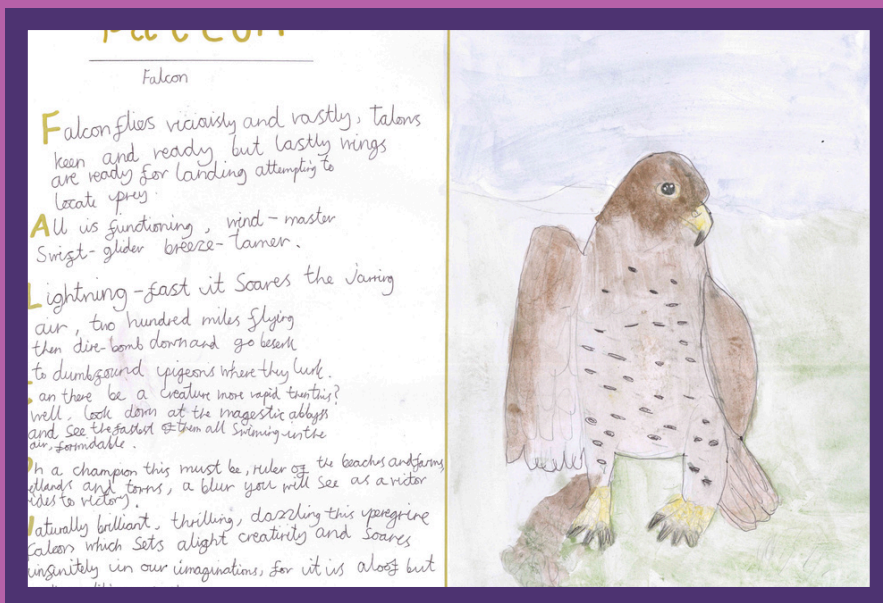 Falcon
Falcon
Falcon flies viciously and vastly, talons
keen and ready but lastly wings
are ready for landing attempting to
locate prey.
All is functioning, wind-master
Swift-glider breeze-tamer.
Lightning-fast it Soares the jarring
air, two hundred miles flying
then dive-bomb down and go beserk
to dumbfound pigeons where they lurk.
Can there be a creature more rapid then this?
well, look down at the magestic abbyss
and see the fastest of them all Swiming in the
air, formidable.
Oh a champion this must be, ruler of the beaches and farms,
etlands and towns, a blur you will see as a victor
rides to victory.
Naturally brilliant, thrilling, dazzling this peregrine
falcon which sets alight creativity and Soares
infinitely in our imaginations, for it is aloof but